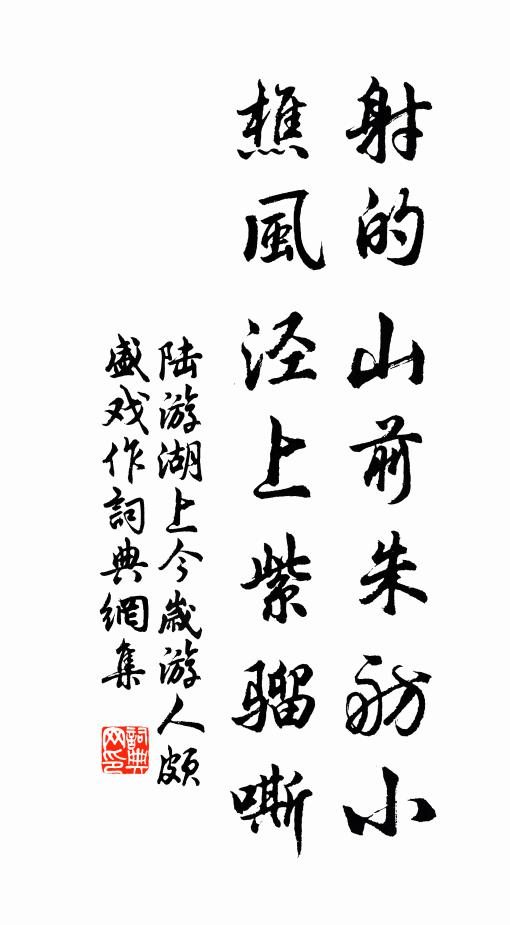 射的山前朱舫小
樵風泾上紫骝嘶
陆游湖上今歲游人頗
盛戏作詞典網集
詞典
网印